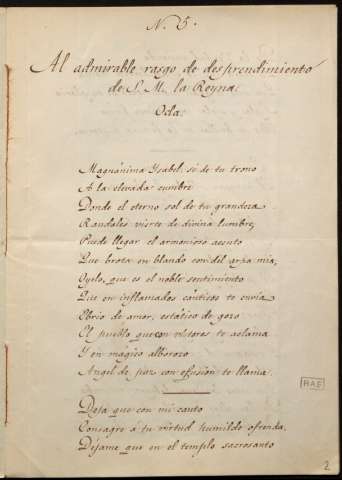 N. 5.
Al admirable rasgo de desprendimiento
de S. M. la Reyna.
Oda.
Magnánima Ysabel, si de tu trono
A la elevada cumbre
Donde el eterno sol de tu grandeza
Raudales vierte de divina lumbre,
Puede llegar el armonioso acento
Que brota en blando son del arpa mia,
Oyelo, que es el noble sentimiento
Que en inflamados cánticos te envia
Ebrio de amor, estático de gozo
El pueblo que con vitores te aclama
Y en mágico alborozo
Angel de paz con efusion te llama.
Deja que con mi canto
Consagre a tu virtud humilde ofrenda,
Déjame que en el templo sacrosanto
RAE
2